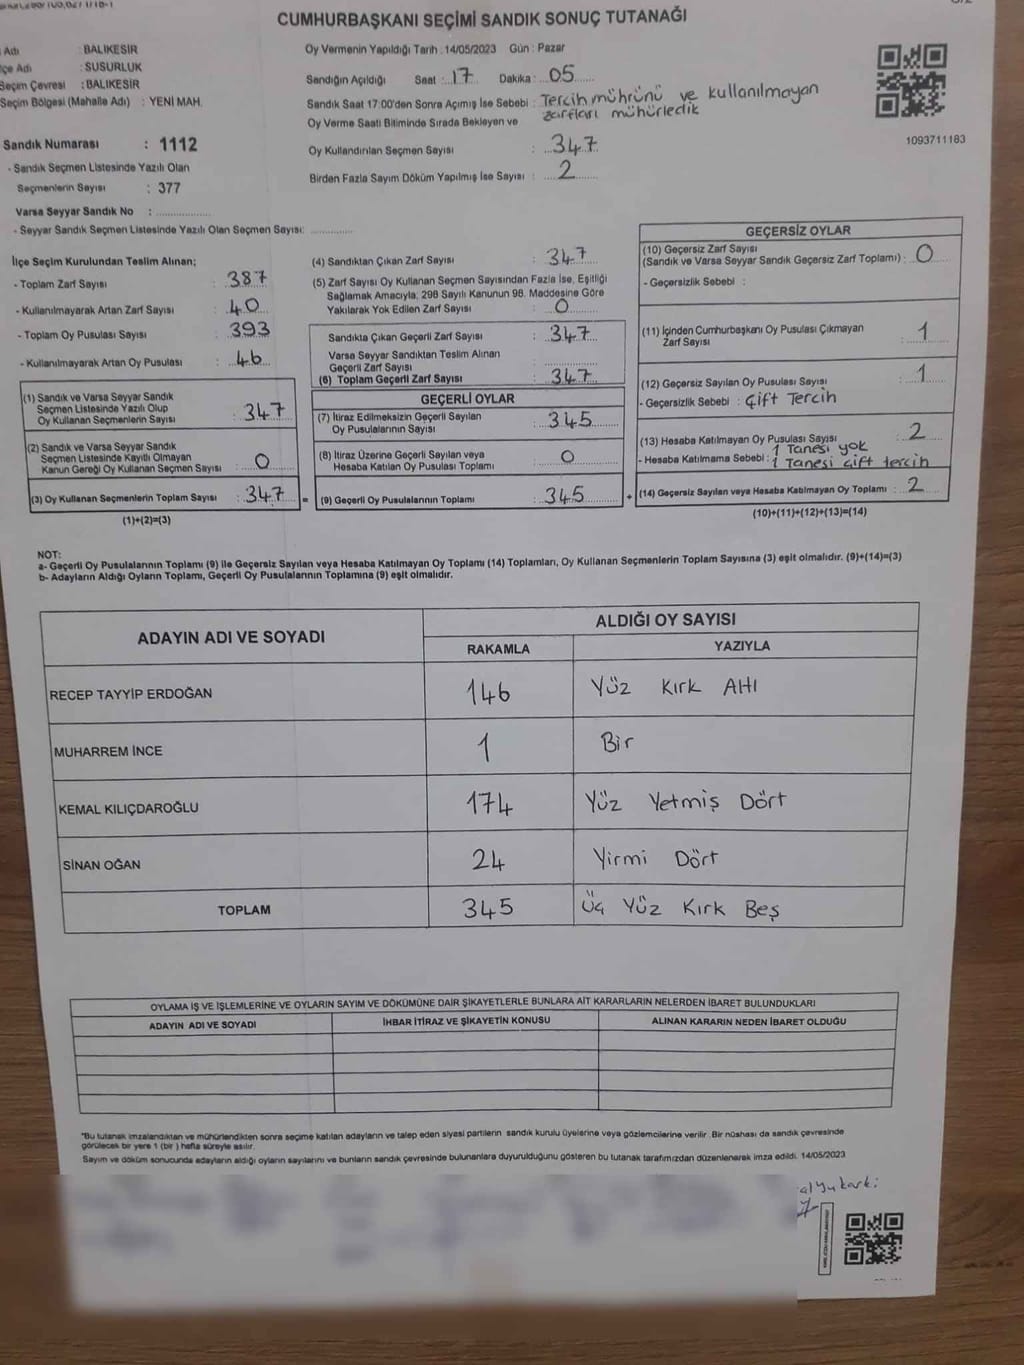 CUMHURBAŞKANI SEÇİMİ SANDIK SONUÇ TUTANAĞI
Adı : BALIKESİR
Oy Vermenin Yapıldığı Tarih : 14/05/2023 Gün : Pazar
İlçe Adı : SUSURLUK
Seçim Çevresi : BALIKESİR
Seçim Bölgesi (Mahalle Adı) : YENİ MAH.
Sandığın Açıldığı Saat : 17 Dakika : 05
Sandık Saat 17:00'den Sonra Açımış İse Sebebi : Tercih mührünü ve kullanılmayan
zarfları mühürledik
Oy Verme Saati Bitiminde Sırada Bekleyen ve
Oy Kullandırılan Seçmen Sayısı : 347
Birden Fazla Sayım Döküm Yapılmış İse Sayısı : 2
1093711183
Sandık Numarası : 1112
- Sandık Seçmen Listesinde Yazılı Olan
Seçmenlerin Sayısı : 377
Varsa Seyyar Sandık No :
- Seyyar Sandık Seçmen Listesinde Yazılı Olan Seçmen Sayısı:
İlçe Seçim Kurulundan Teslim Alınan;
- Toplam Zarf Sayısı : 387
- Kullanılmayarak Artan Zarf Sayısı : 40
- Toplam Oy Pusulası Sayısı : 393
- Kullanılmayarak Artan Oy Pusulası : 46
(1) Sandık ve Varsa Seyyar Sandık
Seçmen Listesinde Yazılı Olup
Oy Kullanan Seçmenlerin Sayısı : 347
(2) Sandık ve Varsa Seyyar Sandık
Seçmen Listesinde Kayıtlı Olmayan
Kanun Gereği Oy Kullanan Seçmen Sayısı : 0
(3) Oy Kullanan Seçmenlerin Toplam Sayısı : 347 =
(1)+(2)=(3)
(4) Sandıktan Çıkan Zarf Sayısı : 347
(5) Zarf Sayısı Oy Kullanan Seçmen Sayısından Fazla İse, Eşitliği
Sağlamak Amacıyla; 298 Sayılı Kanunun 98. Maddesine Göre
Yakılarak Yok Edilen Zarf Sayısı : 0
Sandıkta Çıkan Geçerli Zarf Sayısı : 347
Varsa Seyyar Sandıktan Teslim Alınan
Geçerli Zarf Sayısı :
(6) Toplam Geçerli Zarf Sayısı : 347
GEÇERLİ OYLAR
(7) İtiraz Edilmeksizin Geçerli Sayılan
Oy Pusulalarının Sayısı : 345
(8) İtiraz Üzerine Geçerli Sayılan veya
Hesaba Katılan Oy Pusulası Toplamı : 0
(9) Geçerli Oy Pusulalarının Toplamı : 345 +
GEÇERSİZ OYLAR
(10) Geçersiz Zarf Sayısı
(Sandık ve Varsa Seyyar Sandık Geçersiz Zarf Toplamı) : 0
- Geçersizlik Sebebi :
(11) İçinden Cumhurbaşkanı Oy Pusulası Çıkmayan
Zarf Sayısı : 1
(12) Geçersiz Sayılan Oy Pusulası Sayısı : 1
- Geçersizlik Sebebi : Çift Tercih
(13) Hesaba Katılmayan Oy Pusulası Sayısı : 2
1 Tanesi yok
- Hesaba Katılmama Sebebi : 1 Tanesi çift tercih
(14) Geçersiz Sayılan veya Hesaba Katılmayan Oy Toplamı : 2
(10)+(11)+(12)+(13)=(14)
NOT:
a- Geçerli Oy Pusulalarının Toplamı (9) ile Geçersiz Sayılan veya Hesaba Katılmayan Oy Toplamı (14) Toplamları, Oy Kullanan Seçmenlerin Toplam Sayısına (3) eşit olmalıdır. (9)+(14)=(3)
b- Adayların Aldığı Oyların Toplamı, Geçerli Oy Pusulalarının Toplamına (9) eşit olmalıdır.
ADAYIN ADI VE SOYADI
ALDIĞI OY SAYISI
RAKAMLA YAZIYLA
RECEP TAYYİP ERDOĞAN 146 Yüz Kırk Altı
MUHARREM İNCE 1 Bir
KEMAL KILIÇDAROĞLU 174 Yüz Yetmiş Dört
SİNAN OĞAN 24 Yirmi Dört
TOPLAM 345 Üç Yüz Kırk Beş
OYLAMA İŞ VE İŞLEMLERİNE VE OYLARIN SAYIM VE DÖKÜMÜNE DAİR ŞİKAYETLERLE BUNLARA AİT KARARLARIN NELERDEN İBARET BULUNDUKLARI
ADAYIN ADI VE SOYADI İHBAR İTİRAZ VE ŞİKAYETİN KONUSU ALINAN KARARIN NEDEN İBARET OLDUĞU
"Bu tutanak imzalandıktan ve mühürlendikten sonra seçime katılan adayların ve talep eden siyasi partilerin sandık kurulu üyelerine veya gözlemcilerine verilir. Bir nüshası da sandık çevresinde
görülecek bir yere 1 (bir) hafta süreyle asılır.
Sayım ve döküm sonucunda adayların aldığı oyların sayılarını ve bunların sandık çevresinde bulunanlara duyurulduğunu gösteren bu tutanak tarafımızdan düzenlenerek imza edildi. 14/05/2023